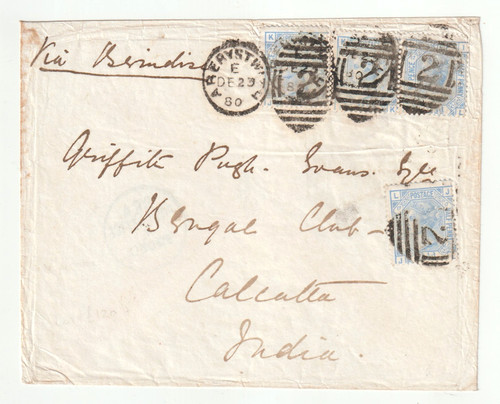 Via Brindisi
ABERYSTWYTH
E
DE 23
80
2
2
2
Griffith Pugh Evans Esqre
Bengal Club
Calcutta
India
L J
POSTAGE
2